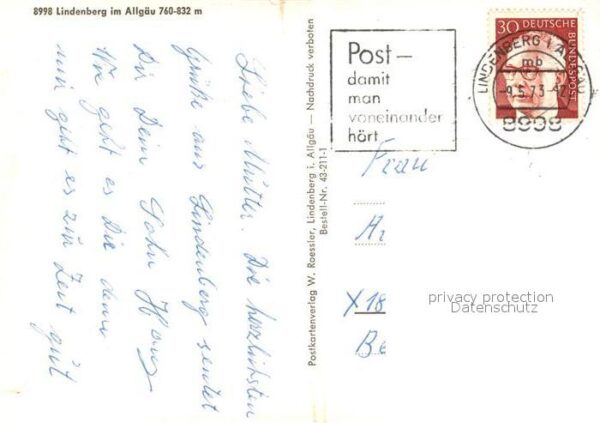 8998 Lindenberg im Allgäu 760-832 m
Liebe Mutter. Die herzlichsten
Grüße aus Lindenberg sendet
Dir Dein Sohn Hans
Wie geht es Dir denn
mir geht es zur Zeit gut
Postkartenverlag W. Roessler, Lindenberg i. Allgäu — Nachdruck verboten
Bestell-Nr. 43-211-1
Post —
damit
man
voneinander
hört
30 DEUTSCHE
BUNDESPOST
LINDENBERG i ALLGÄU
mb
-9.5.73-17
8998
Frau
X 18
Be
privacy protection
Datenschutz